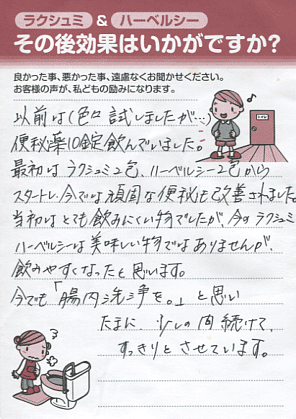 ラクシュミ & ハーベルシー
その後効果はいかがですか?
良かった事、悪かった事、遠慮なくお聞かせください。
お客様の声が、私どもの励みになります。
以前は(色々試しましたが…)
便秘薬10錠飲んでいました。
最初はラクシュミ2包、ハーベルシー2包から
スタートし、今では頑固な便秘も改善されました。
当初はとても飲みにくい物でしたが、今のラクシュミ
ハーベルシーは美味しい物ではありませんが、
飲みやすくなったと思います。
今でも「腸内洗浄を。」と思い
たまに、少しの間続けて、
すっきりとさせています。